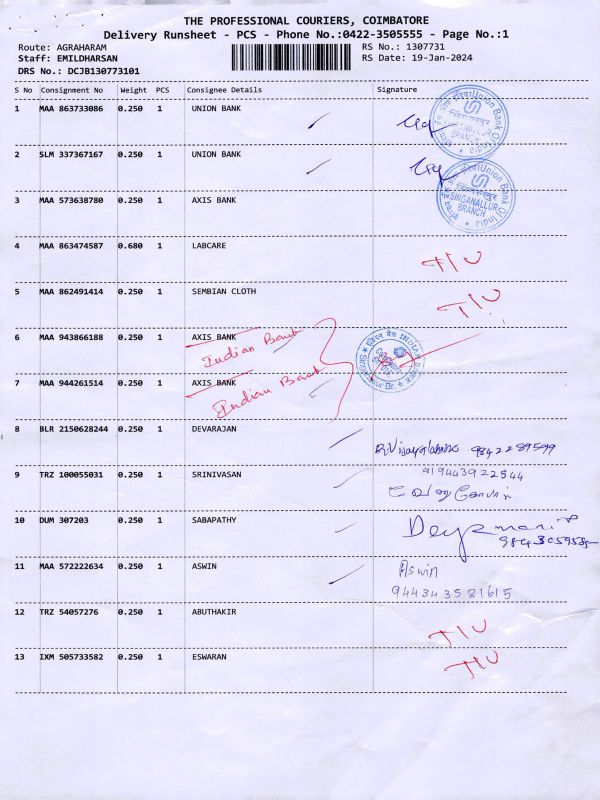 THE PROFESSIONAL COURIERS, COIMBATORE
Delivery Runsheet - PCS - Phone No.:0422-3505555 - Page No.:1
Route: AGRAHARAM
Staff: EMILDHARSAN
DRS No.: DCJB130773101
RS No.: 1307731
RS Date: 19-Jan-2024
S No Consignment No Weight PCS Consignee Details Signature
1 MAA 863733086 0.250 1 UNION BANK
Union Bank Of India
SINGANALLUR
BRANCH
2 SLM 337367167 0.250 1 UNION BANK
Union Bank Of India
SINGANALLUR
BRANCH
3 MAA 573638780 0.250 1 AXIS BANK
4 MAA 863474587 0.680 1 LABCARE T/U
5 MAA 862491414 0.250 1 SEMBIAN CLOTH T/U
6 MAA 943866188 0.250 1 AXIS BANK
Indian Bank
INDIAN BANK
7 MAA 944261514 0.250 1 AXIS BANK
Indian Bank
8 BLR 2150628244 0.250 1 DEVARAJAN
9842289599
9 TRZ 100055031 0.250 1 SRINIVASAN
919443922544
10 DUM 307203 0.250 1 SABAPATHY
11 MAA 572222634 0.250 1 ASWIN Aswin
944343581615
12 TRZ 54057276 0.250 1 ABUTHAKIR T/U
13 IXM 505733582 0.250 1 ESWARAN T/U